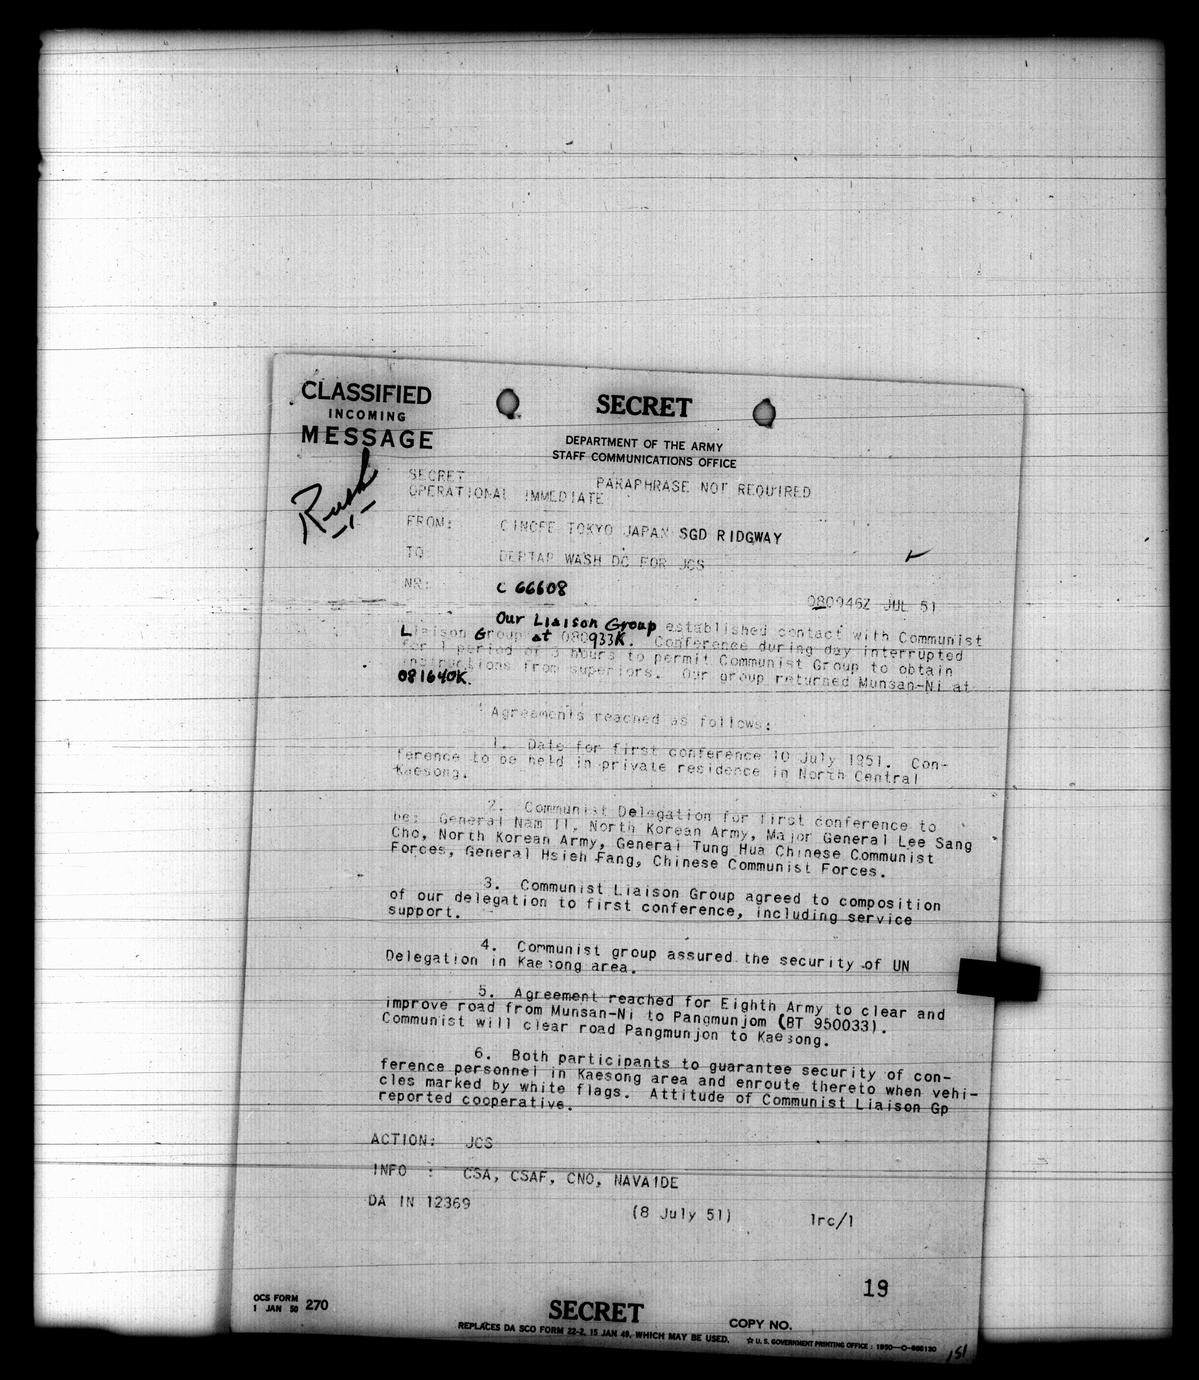 CLASSIFIED
INCOMING
MESSAGE
SECRET
DEPARTMENT OF THE ARMY
STAFF COMMUNICATIONS OFFICE
Rush
-1-
SECRET
PARAPHRASE NOT REQUIRED
OPERATIONAL IMMEDIATE
FROM: CINCFE TOKYO JAPAN SGD RIDGWAY
TO DEPTAR WASH DC FOR JCS
NR: C 66608
080946Z JUL 51
Our Liaison Group established contact with Communist
Liaison Group at 080933K. Conference during day interrupted
for 1 period of 3 hours to permit Communist Group to obtain
instructions from superiors. Our group returned Munsan-Ni at
081640K.
Agreements reached as follows:
1. Date for first conference 10 July 1951. Con-
ference to be held in private residence in North Central
Kaesong.
2. Communist Delegation for first conference to
be: General Nam Il, North Korean Army, Major General Lee Sang
Cho, North Korean Army, General Tung Hua Chinese Communist
Forces, General Hsieh Fang, Chinese Communist Forces.
3. Communist Liaison Group agreed to composition
of our delegation to first conference, including service
support.
4. Communist group assured the security of UN
Delegation in Kaesong area.
5. Agreement reached for Eighth Army to clear and
improve road from Munsan-Ni to Pangmunjom (BT 950033).
Communist will clear road Pangmunjon to Kaesong.
6. Both participants to guarantee security of con-
ference personnel in Kaesong area and enroute thereto when vehi-
cles marked by white flags. Attitude of Communist Liaison Gp
reported cooperative.
ACTION: JCS
INFO : CSA, CSAF, CNO, NAVAIDE
DA IN 12369 (8 July 51) lrc/1
19
OCS FORM
1 JAN 50 270
SECRET
COPY NO.
REPLACES DA SCO FORM 22-2, 15 JAN 49, WHICH MAY BE USED.
☆ U. S. GOVERNMENT PRINTING OFFICE : 1950—O-
151